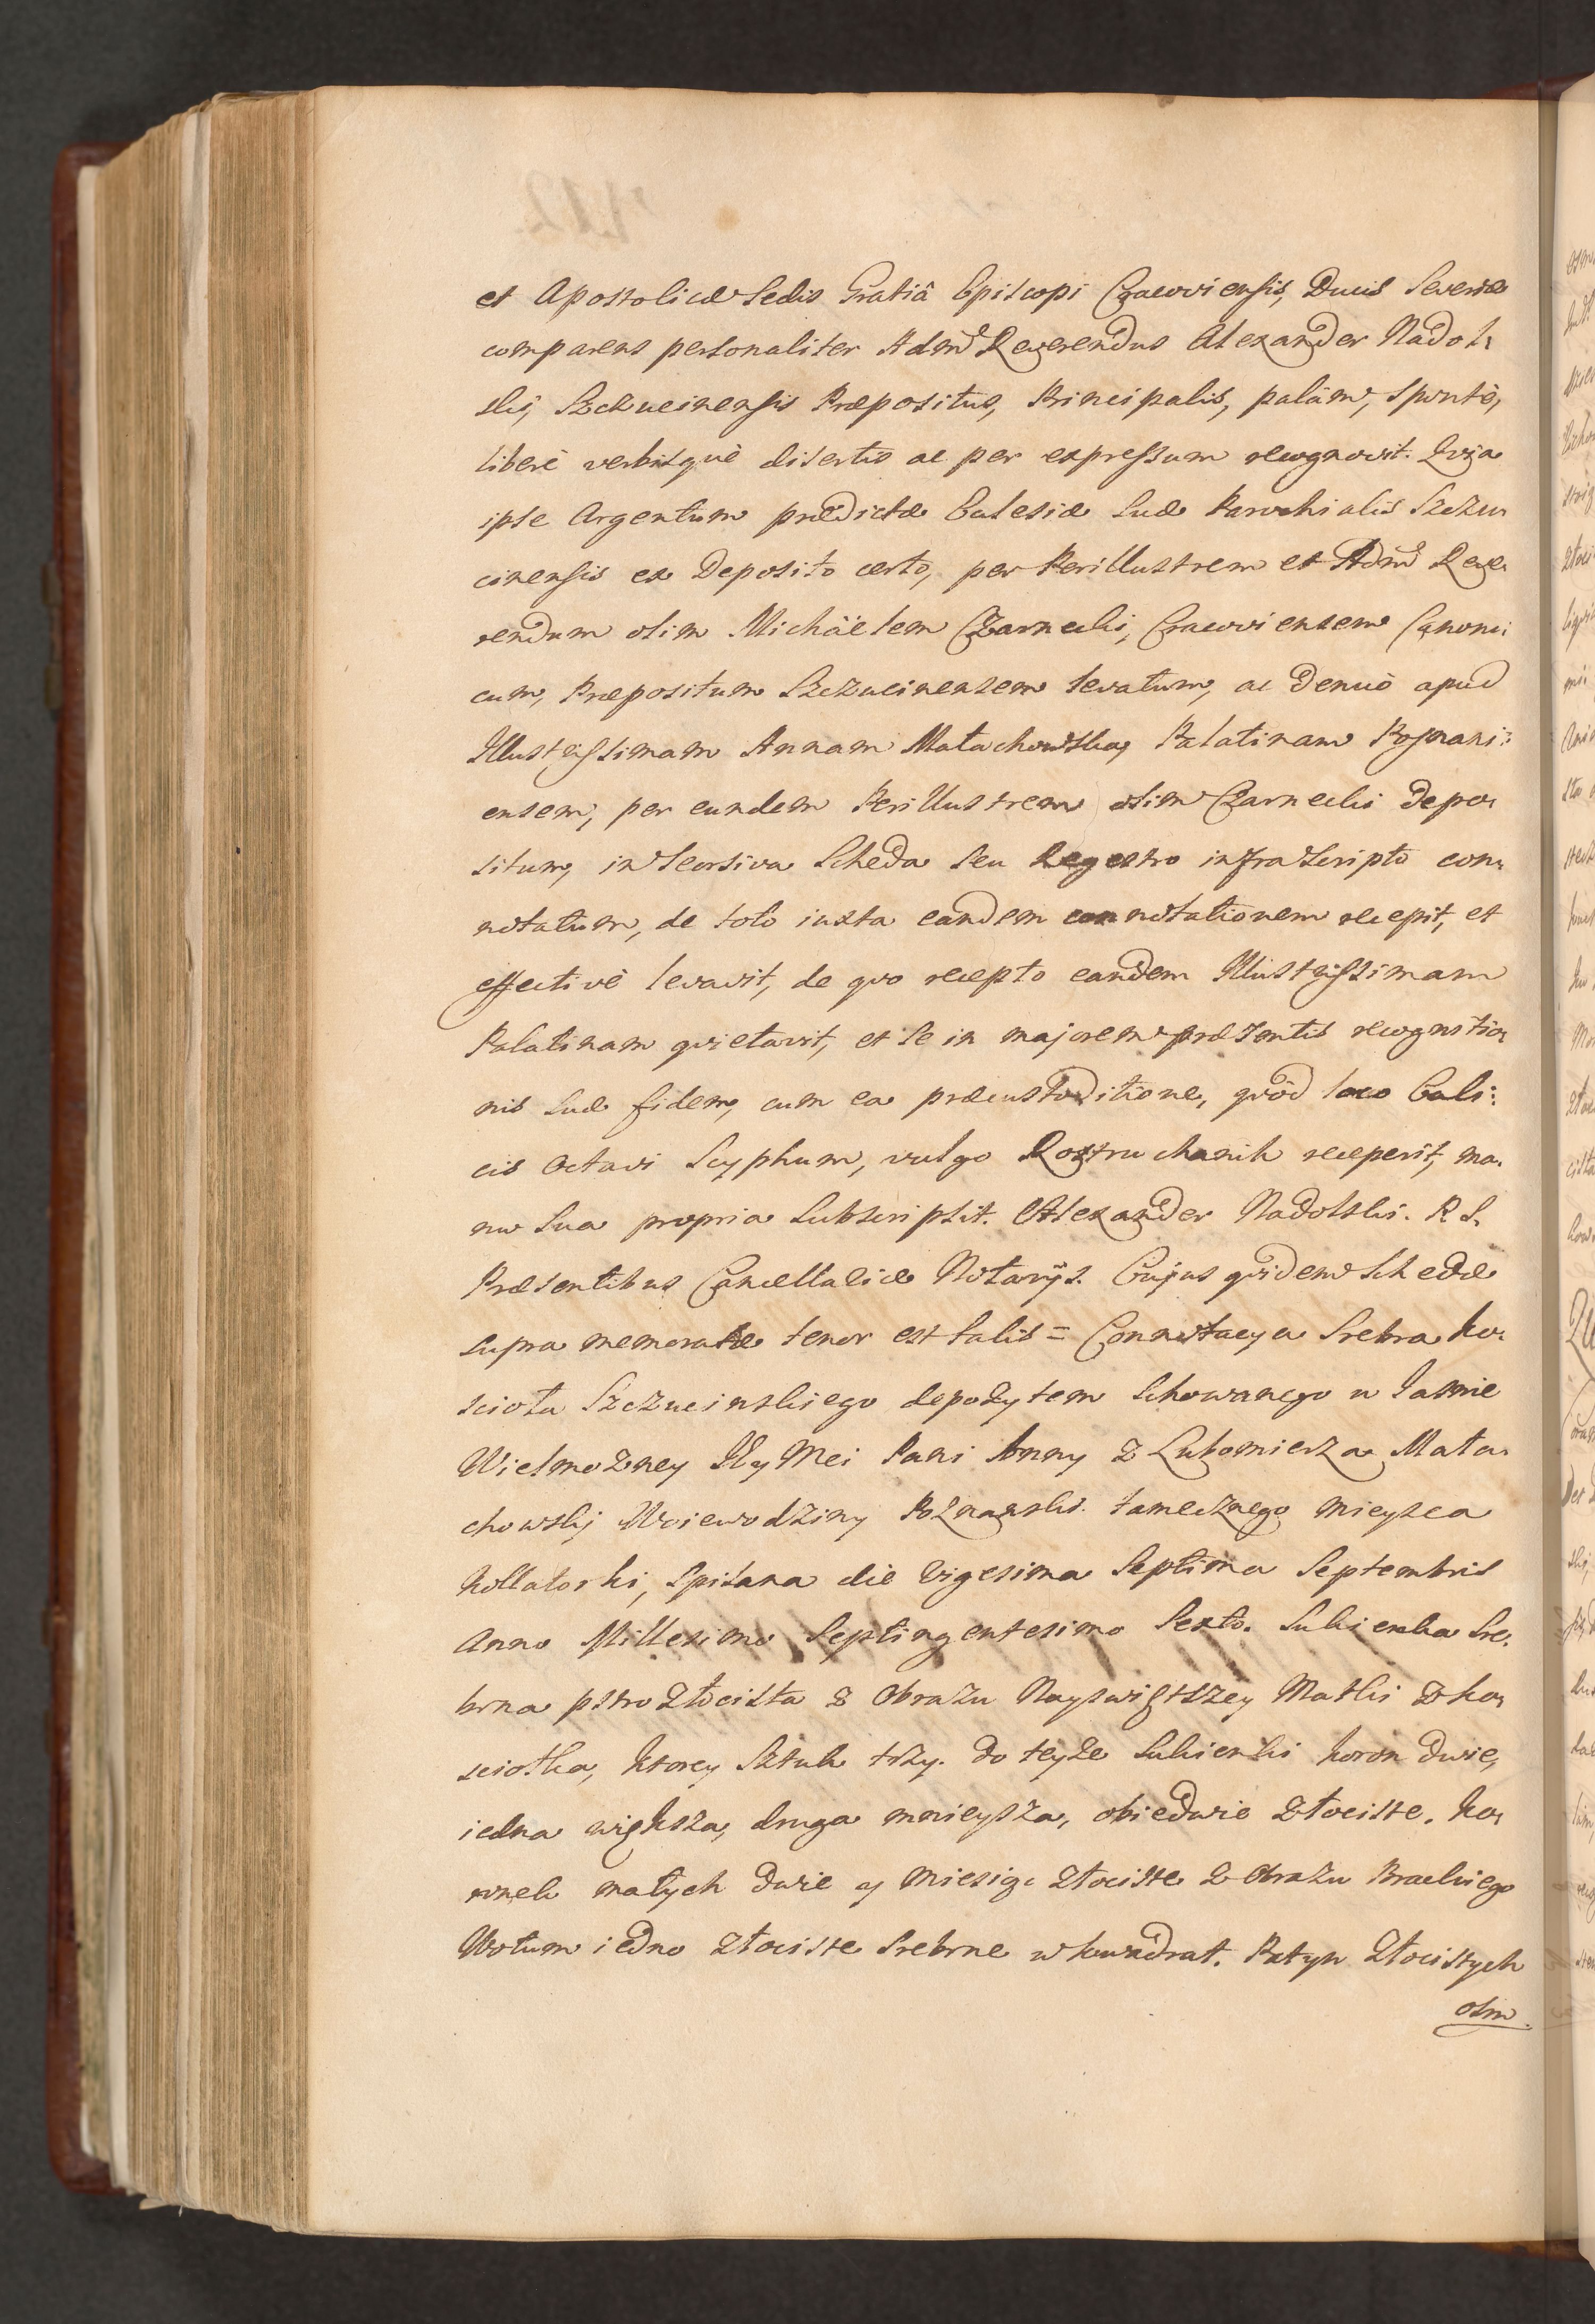 et Apostolicæ Sedis Gratiâ Episcopi Cracoviensis, Ducis Severiæ
comparens personaliter Admd Reverendus Alexander Nadol:
ski, Szczucinensis Præpositus, Principalis, palàm, spontè,
liberè verbisquè disertis ac per expressum recognovit. Quia
ipse Argentum prædictæ Eclesiæ Suæ Parochialis Szczu:
cinensis ex Deposito certo, per Perillustrem et Admd Reve:
rendum olim Michäelem Czarnecki, Cracoviensem Canoni:
cum, Præpositum Szczucinensem levatum, ac denuò apud
Illustrissimam Annam Małachowska, Palatinam Posnani:
ensem, per eundem Perillustrem olim Czarnecki depo:
situm, in Seorsiva Scheda seu Regestro infrascripto con:
notatum, de toto iuxta eandem connotationem recepit, et
effectivè levavit, de quo recepto eandem Illustrissimam
Palatinam quietavit, et se in majorem præsentis recognitio:
nis suæ fidem, cum ea præcustoditione, quòd loco Cali:
cis octavi Scyphum, vulgo Roztruchanik receperit, ma:
nu sua propria subscripsit. Alexander Nadolski. P. S.
Præsentibus Cancellariæ Notarijs. Cujus quidem Schedæ
supra memoratæ tenor est talis = Connotacya Srebra ko:
scioła Szczucinskiego depozytem schowanego u Jasnie
Wielmozney Jey Mci Pani Anny z Lubomierza Mała:
chowskij Woiewodziny Poznanski. tamecznego mieysca
Kollatorki, spisana die vigesima septima Septembris
Anno Millesimo Septingentesimo Sexto. Sukienka Sre:
brna pstro złocista z Obrazu Nayswiętszey Matki z ko:
sciołka, ktorey Sztuk trzy. do teyże Sukienki koron dwie,
iedna większa, druga mnieysza, obiedwie złociste. Ko:
ronek małych dwie y miesiąc złociste z Obrazu Brackiego
Wotum iedno złociste srebrne w kwadrat. Patyn złocistych
osm.